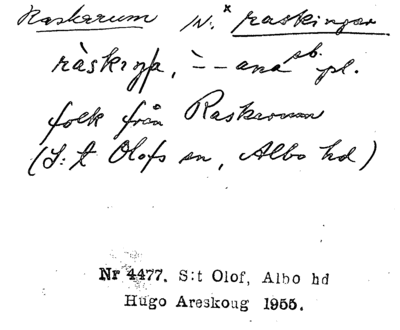 Raskarum N. x raskingar
ràskiŋa, ˋ–– ana sb. pl.
folk från Raskarum
(S:t Olofs sn, Albo hd)
Nr 4477. S:t Olof, Albo hd
Hugo Areskoug 1955.